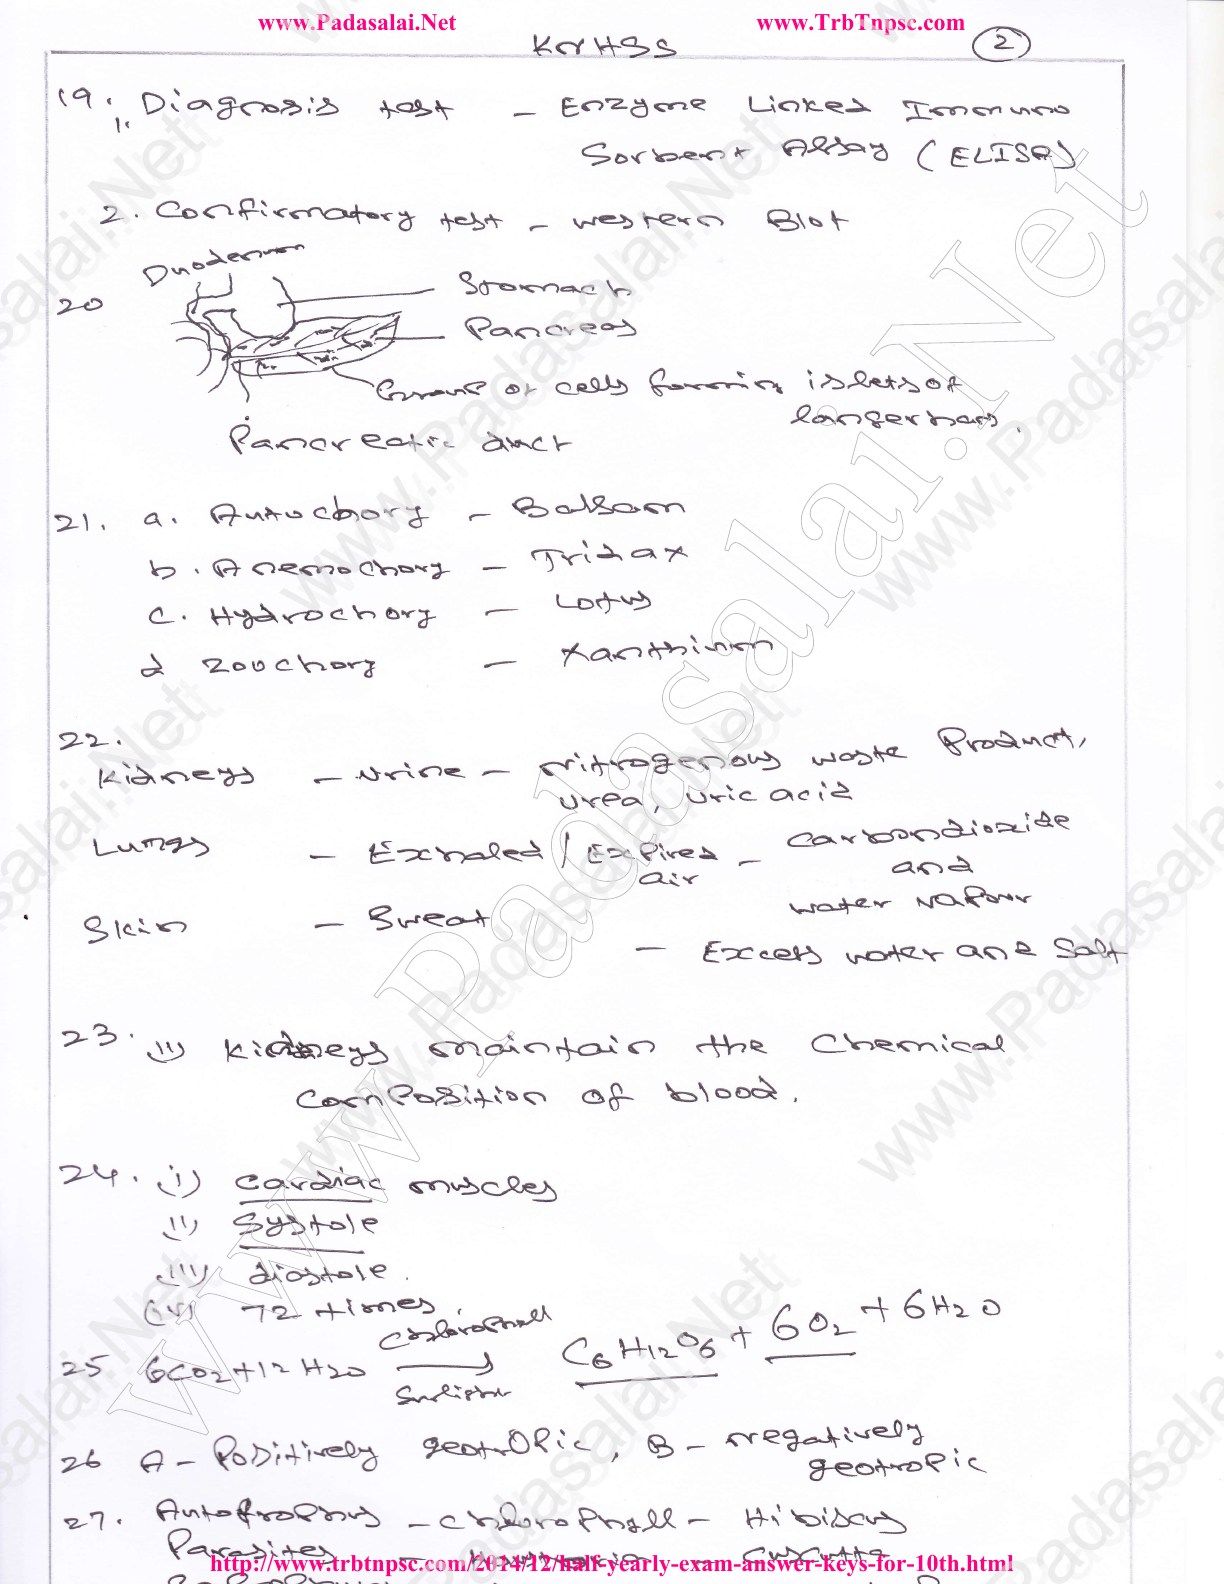 www.Padasalai.Net www.TrbTnpsc.com
KNHSS 2
19. 1. Diagnosis test - Enzyme Linked Immuno
Sorbent Assay (ELISA)
2. Confirmatory test - Western Blot
Duodenum
20
Stomach
Pancreas
Group of cells forming islets of
langerhans.
Pancreatic duct
21. a. Autochory - Balsam
b. Anemochory - Tridax
c. Hydrochory - Lotus
d Zoochory - Xanthium
22.
Kidneys - Urine - Nitrogenous waste Product,
urea, uric acid
Lungs - Exhaled / Expired air - Carbondioxide
and
water vapour
Skin - Sweat
- Excess water and Salt
23. ii) Kidneys maintain the Chemical
Composition of blood.
24. i) Cardiac muscles
ii) Systole
iii) diastole.
iv) 72 times.
25 6CO2+12 H2O Chlorophyll Sunlight C6H12O6 + 6O2 + 6H2O
26 A - Positively geotropic, B - negatively
geotropic
27. Autotrophs - Chlorophyll - Hibiscus
Parasites - Haustoria - Cuscutta
http://www.trbtnpsc.com/2014/12/half-yearly-exam-answer-keys-for-10th.html
www.Padasalai.Net